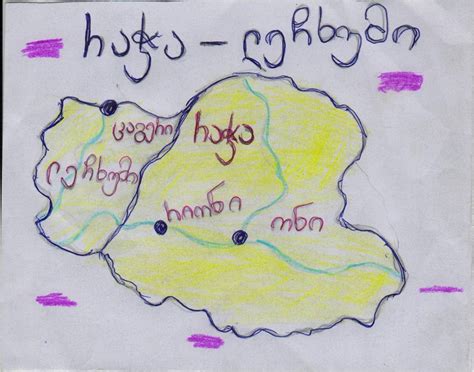 რაჭა – ლეჩხუმი
ცაგერი
რაჭა
ლეჩხუმი
რიონი
ონი